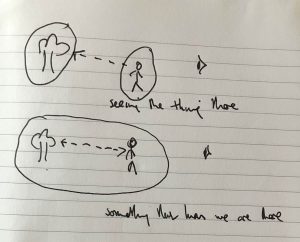 seeing the thing there
something that has we are there